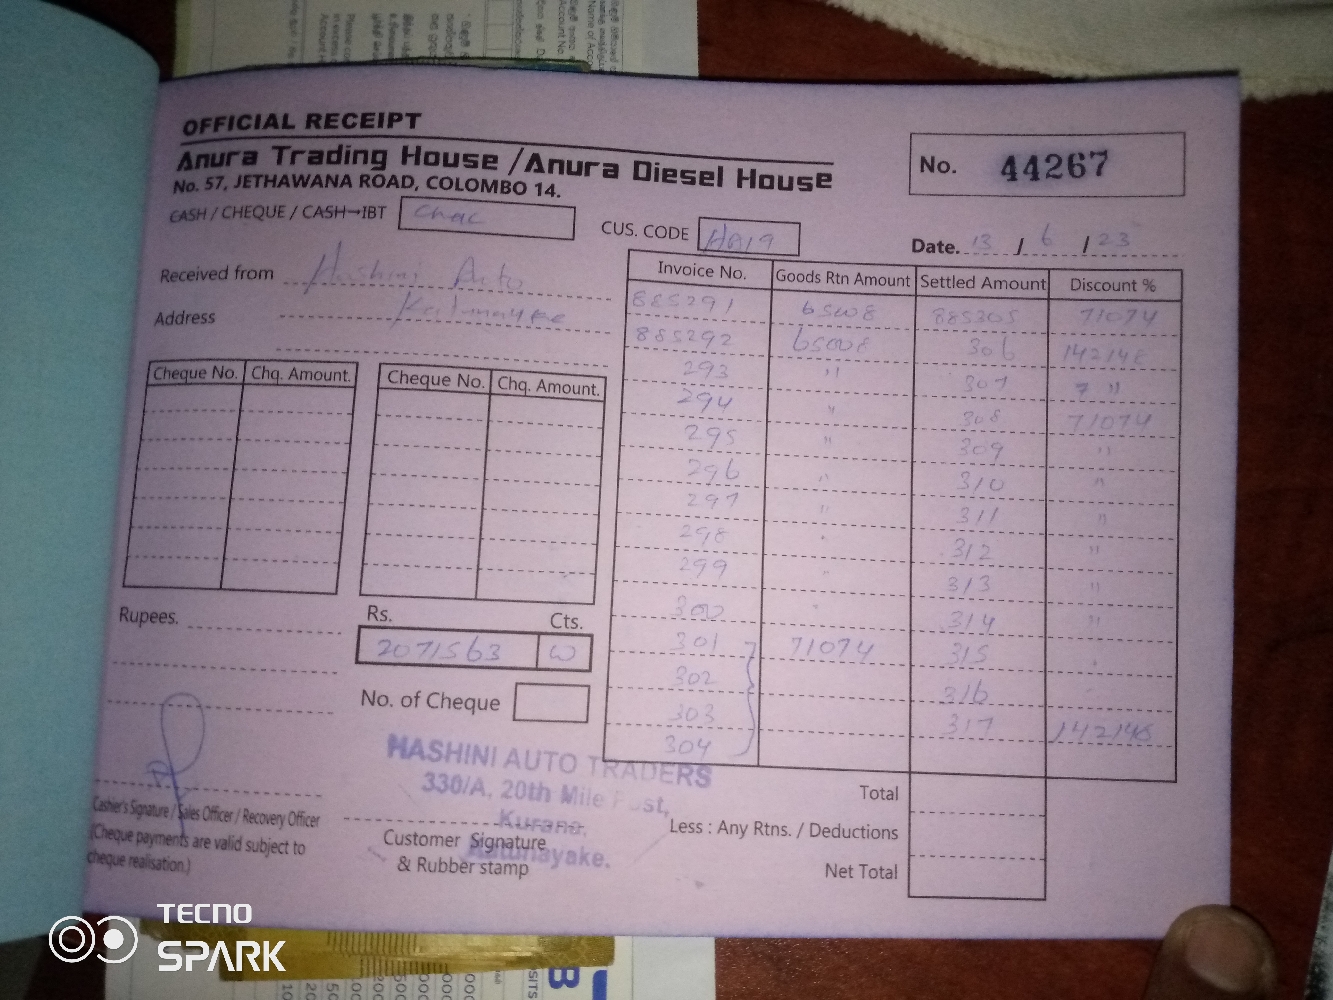 OFFICIAL RECEIPT
Anura Trading House /Anura Diesel House
No. 57, JETHAWANA ROAD, COLOMBO 14.
No. 44267
CASH / CHEQUE / CASH→IBT
CUS. CODE HA19
Date. 13 / 6 / 23
Received from Hashini Auto
Address Katunayake
Cheque No. Chq. Amount. Cheque No. Chq. Amount.
Invoice No. Goods Rtn Amount Settled Amount Discount %
885291 885305 71074
885292 306 142148
293 " 307 "
294 " 308 71074
295 " 309 "
296 " 310 "
297 " 311 "
298 " 312 "
299 " 313 "
300 " 314 "
301 71074 315 "
302 316
303 317 142148
304
Rupees.
Rs. Cts.
2071563
No. of Cheque
HASHINI AUTO TRADERS
330/A, 20th Mile Post,
Kurana,
Katunayake.
Total
Less : Any Rtns. / Deductions
Net Total
Cashier's Signature / Sales Officer / Recovery Officer
(Cheque payments are valid subject to
cheque realisation.)
Customer Signature
& Rubber stamp
TECNO
SPARK